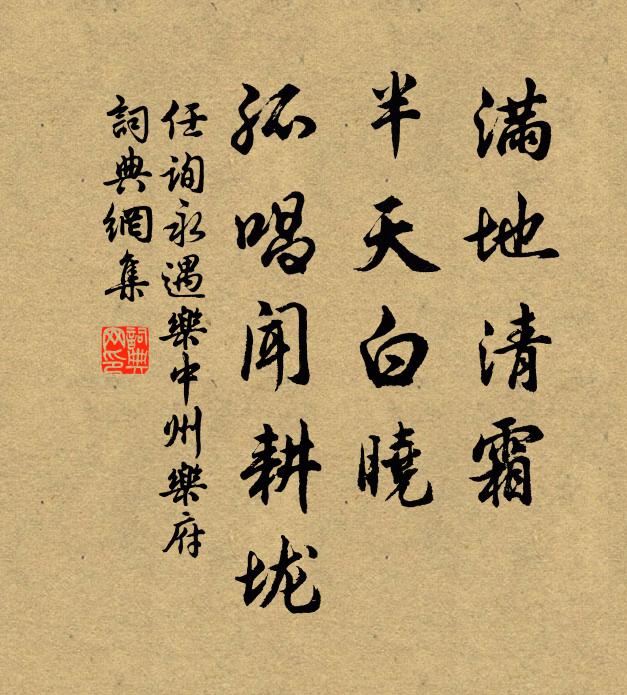 满地清霜
半天白曉
孤唱闻耕垅
任询永遇樂中州樂府
詞典網集
詞典
网印